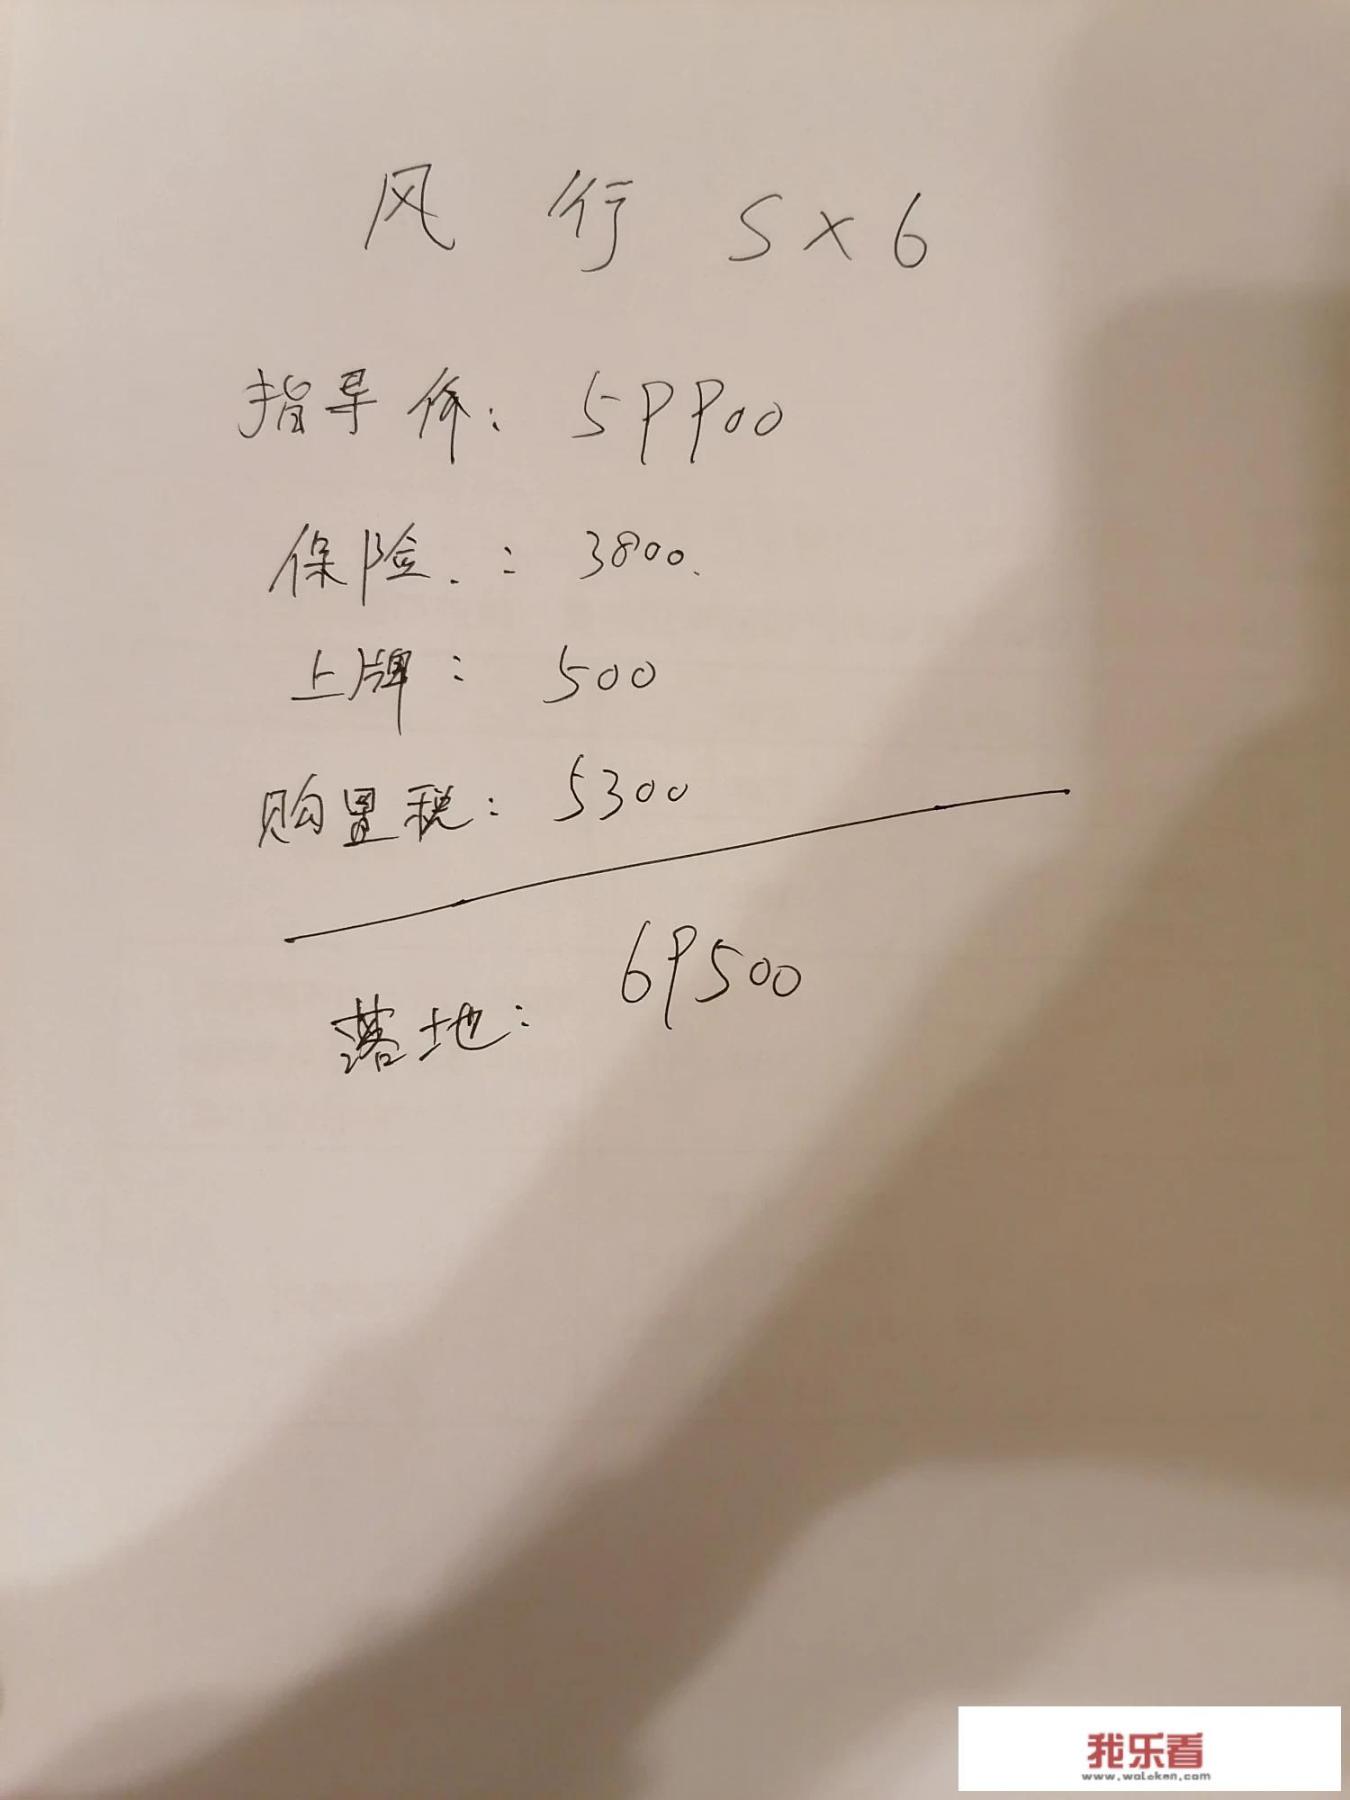 风行 SX6
指导价：59900
保险．：3800.
上牌：500
购置税：5300
落地：69500
我乐看
www.woleken.com